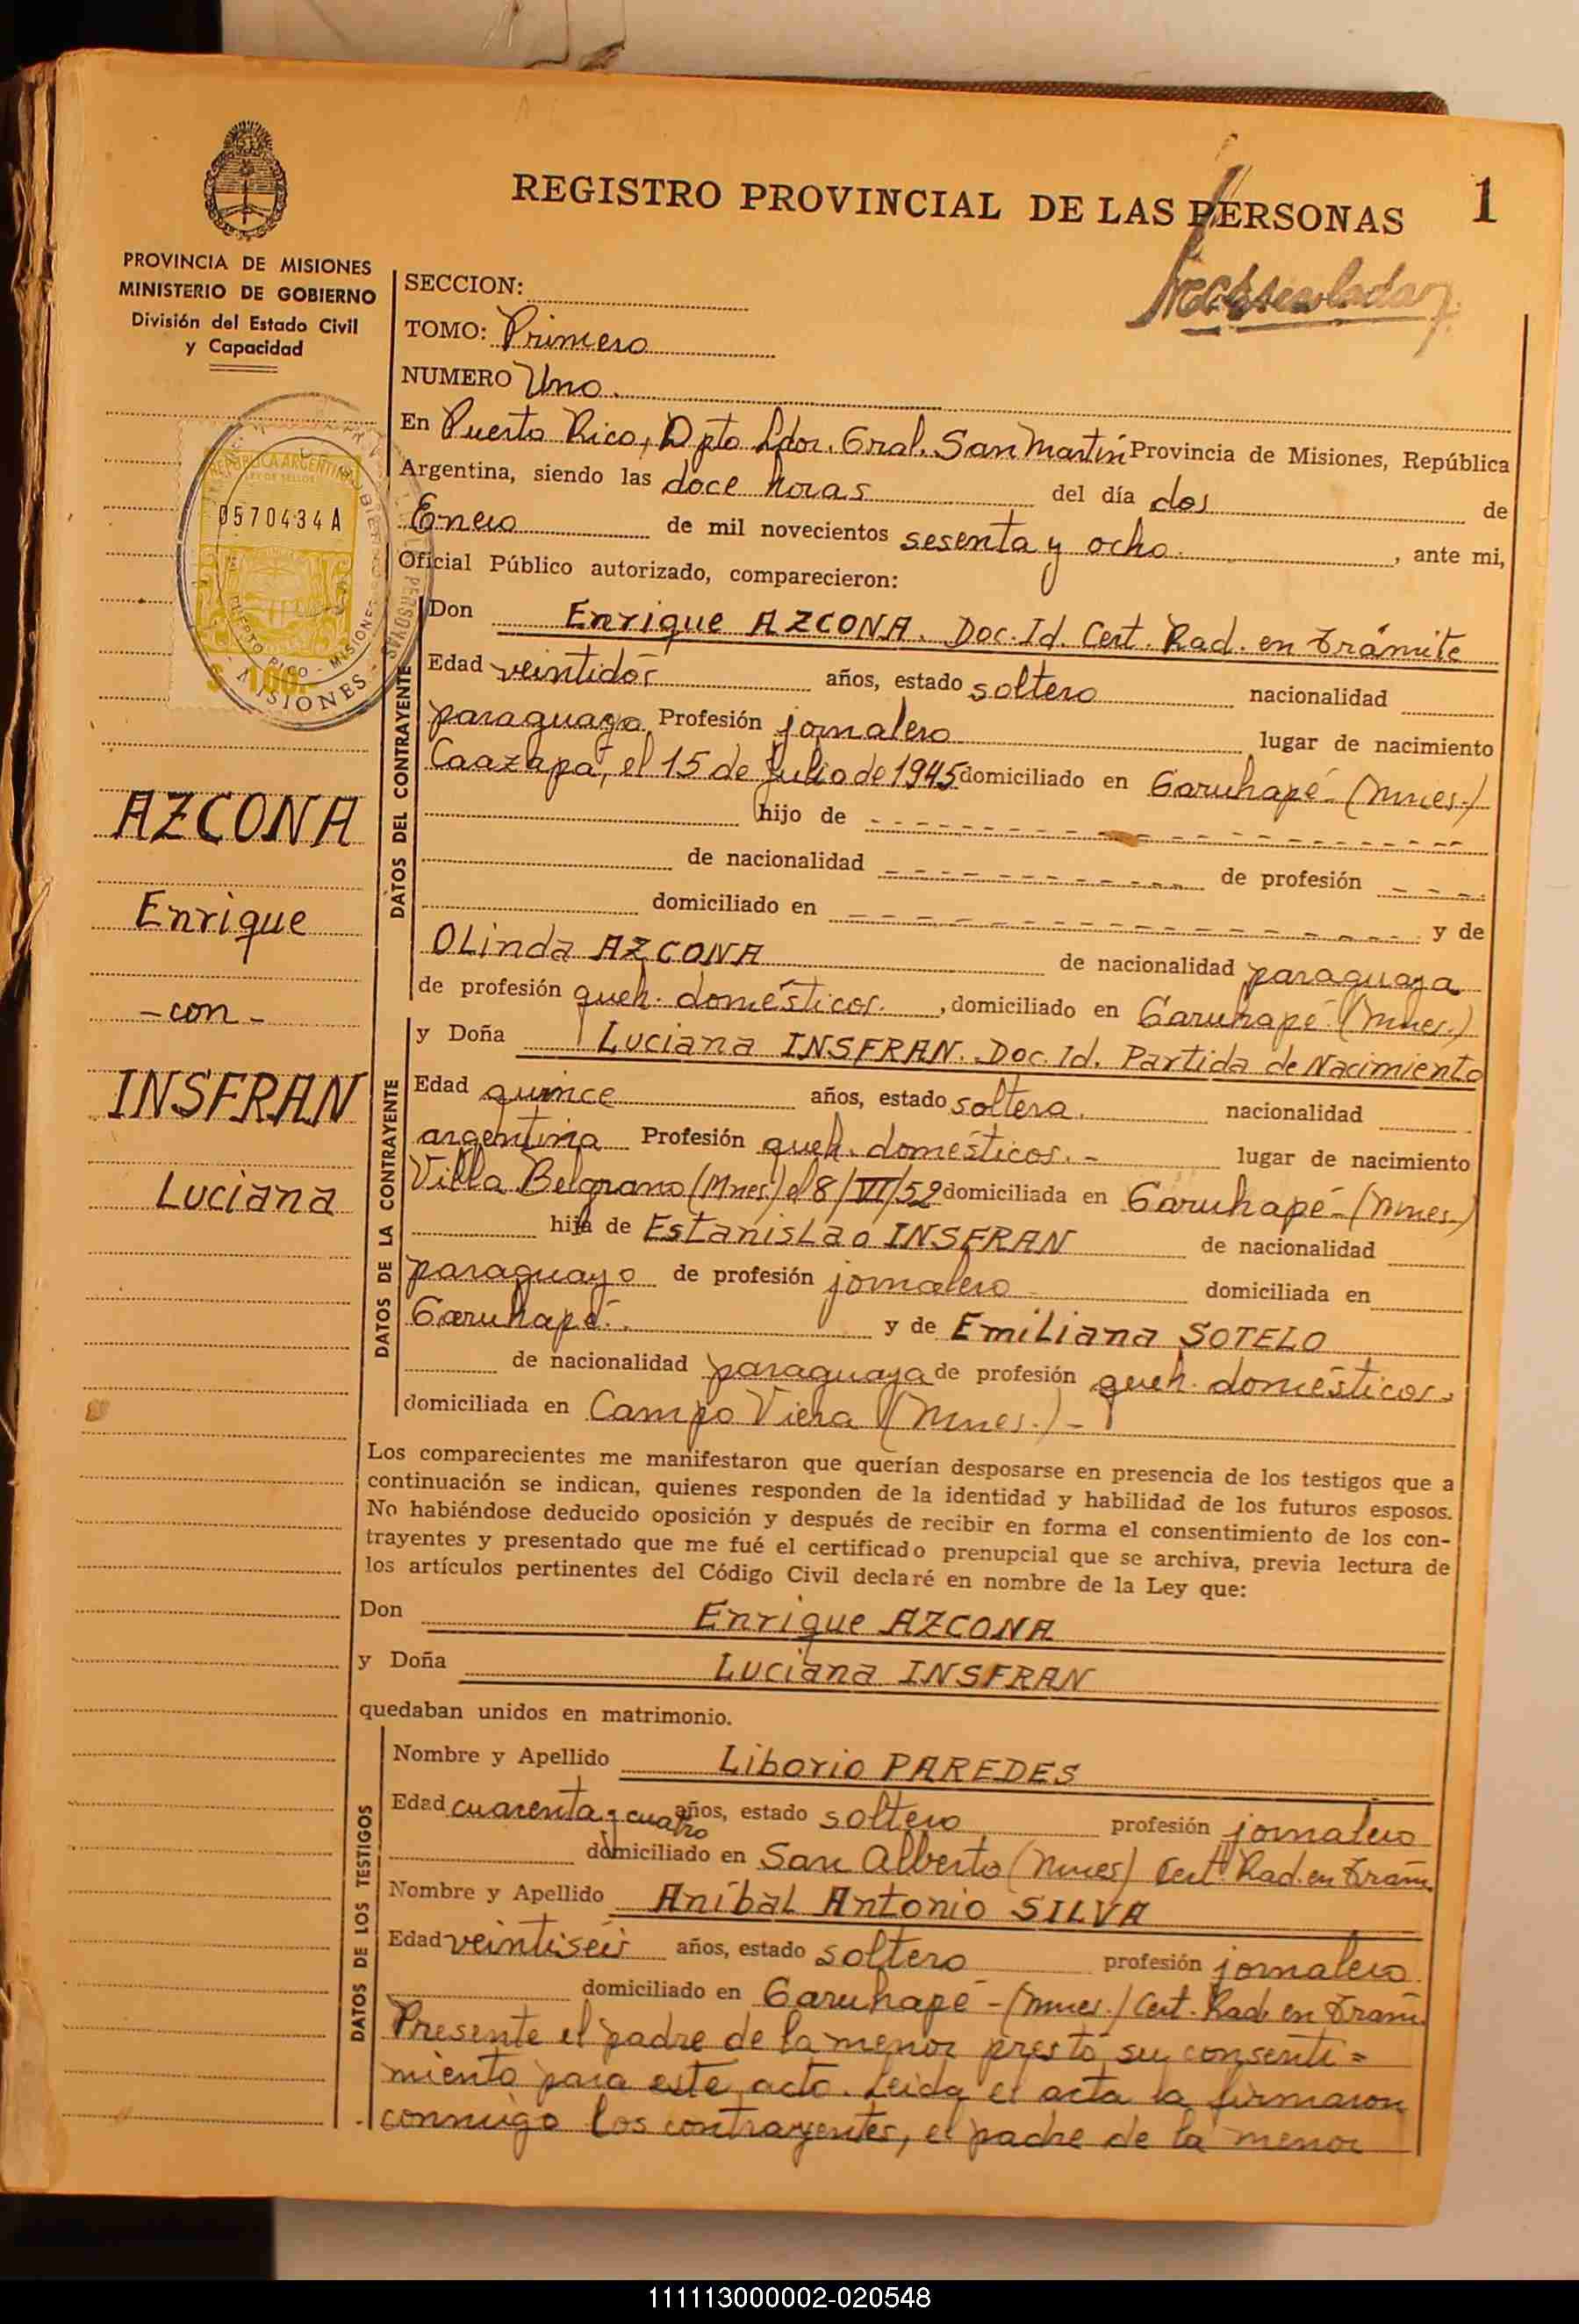 REGISTRO PROVINCIAL DE LAS PERSONAS
1
PROVINCIA DE MISIONES
MINISTERIO DE GOBIERNO
División del Estado Civil
y Capacidad
REPUBLICA ARGENTINA
LEY DE SELLOS
0570434 A
PUERTO RICO - MISIONES
$ 100.-
MISIONES
AZCONA
Enrique
- con -
INSFRAN
Luciana
SECCION:
TOMO: Primero
NUMERO Uno.
En Puerto Rico, Dpto Ldor. Gral. San Martín Provincia de Misiones, República
Argentina, siendo las doce horas del día dos de
Enero de mil novecientos sesenta y ocho. , ante mi,
Oficial Público autorizado, comparecieron:
DATOS DEL CONTRAYENTE
Don Enrique AZCONA. Doc. Id. Cert. Rad. en trámite
Edad veintidós años, estado soltero nacionalidad
paraguaya Profesión jornalero lugar de nacimiento
Caazapá, el 15 de Julio de 1945 domiciliado en Garuhapé - (Mnes.)
hijo de
de nacionalidad de profesión
domiciliado en y de
OLinda AZCONA de nacionalidad paraguaya
de profesión queh. domésticos. , domiciliado en Garuhapé (Mnes.)
DATOS DE LA CONTRAYENTE
y Doña Luciana INSFRAN. Doc. Id. Partida de Nacimiento
Edad quince años, estado soltera. nacionalidad
argentina Profesión queh. domésticos. - lugar de nacimiento
Villa Belgrano (Mnes.) el 8/VII/52 domiciliada en Garuhapé - (Mnes.)
hija de EstanisLao INSFRAN de nacionalidad
paraguayo de profesión jornalero domiciliada en
Garuhapé. y de EmiLiana SOTELO
de nacionalidad paraguaya de profesión queh. domésticos.
domiciliada en Campo Viera (Mnes.) -
Los comparecientes me manifestaron que querían desposarse en presencia de los testigos que a
continuación se indican, quienes responden de la identidad y habilidad de los futuros esposos.
No habiéndose deducido oposición y después de recibir en forma el consentimiento de los con-
trayentes y presentado que me fué el certificado prenupcial que se archiva, previa lectura de
los artículos pertinentes del Código Civil declaré en nombre de la Ley que:
Don Enrique AZCONA
y Doña Luciana INSFRAN
quedaban unidos en matrimonio.
DATOS DE LOS TESTIGOS
Nombre y Apellido Liborio PAREDES
Edad cuarenta y cuatro años, estado soltero profesión jornalero
domiciliado en San Alberto (Mnes) Cert. Rad. en trám.
Nombre y Apellido AníbaL Antonio SILVA
Edad veintiséis años, estado soltero profesión jornalero.
domiciliado en Garuhapé - (Mnes.) Cert. Rad. en trám.
Presente el padre de la menor prestó su consenti=
miento para este acto. Leída el acta la firmaron
conmigo los contrayentes, el padre de la menor
111113000002-020548